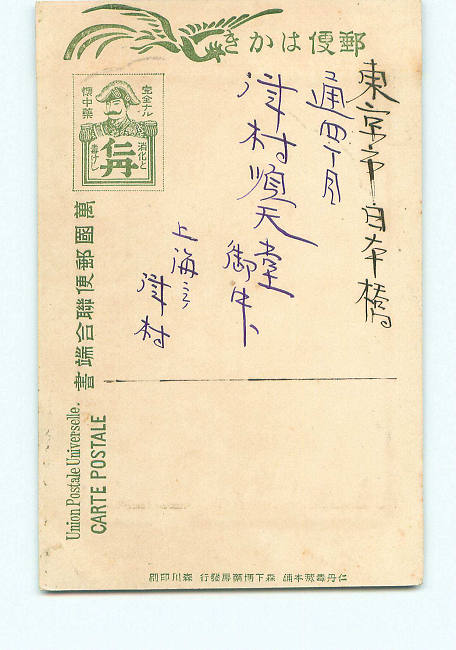 郵便はかき
東京市日本橋
通四丁目
津村順天堂
御中
上海ニテ
津村
完全ナル
懐中薬
消化と
毒けし
仁丹
萬國郵便聯合端書
Union Postale Universelle.
CARTE POSTALE
仁丹毒滅本舗 森下博薬房發行 森川印刷